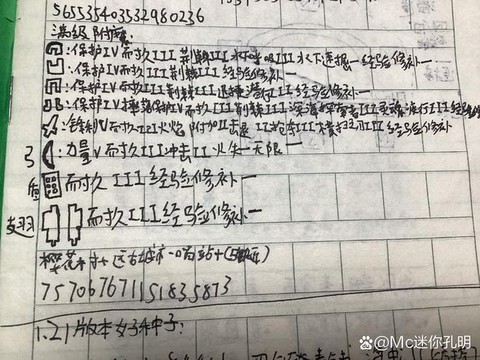 565535403532980236
满级附魔:
:保护IV而久III荆棘III水下呼吸III水下速掘一经验修补一
:保护IV而久III荆棘III经验修补一
:保护IV而久III荆棘III迅捷潜行III经验修补一
:保护IV摔落保护IV而久III荆棘III深海探索者III灵魂疾行III经验修
:锋利V而久III火焰附加II击退II抢夺III横扫之刃III经验修补一
弓 :力量V而久III冲击II火矢一无限一
盾 而久III经验修补一
翅 而久III经验修补一
樱花村+远古城市
7570676711518358 73
1.21版本好种子:
Mc迷你孔明